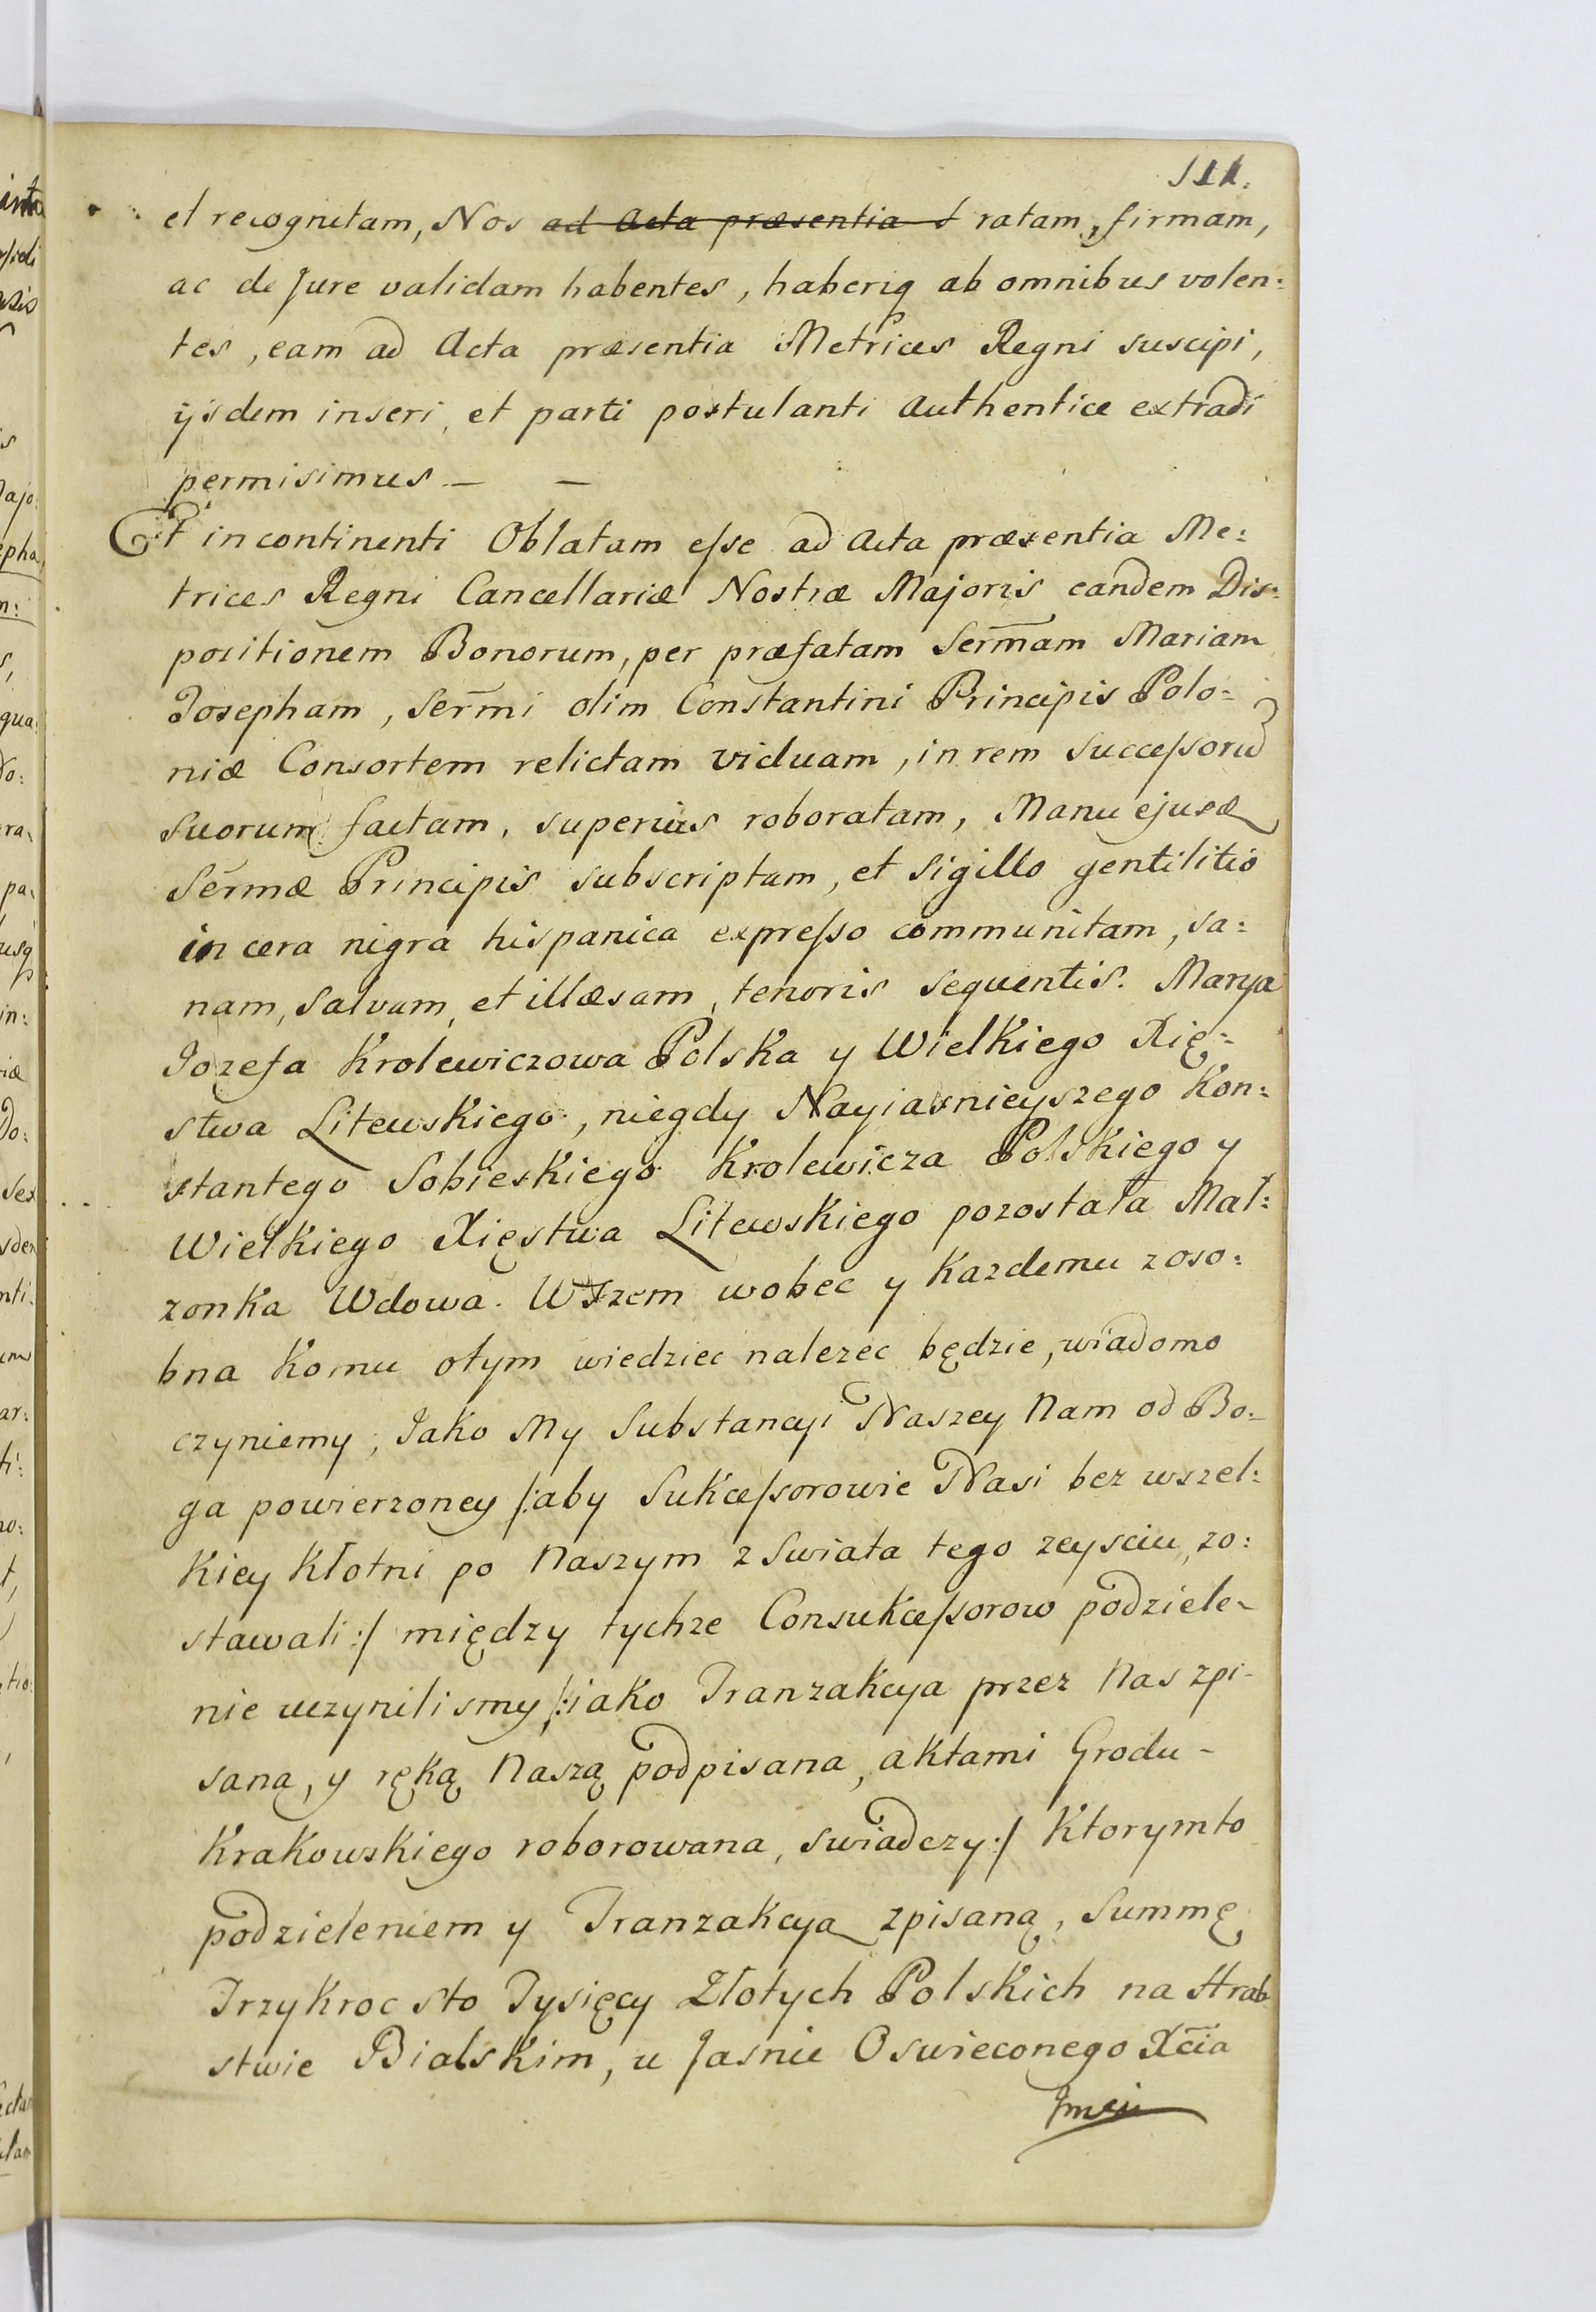 111.
et recognitam, Nos ad Acta præsentia s ratam, firmam,
ac de Jure validam habentes, haberiq ab omnibus volen:
tes, eam ad Acta præsentia Metrices Regni suscipi,
ijsdem inseri, et parti postulanti Authentice extradi
permisimus — —
Et incontinenti Oblatam eſse ad Acta præsentia Me:
trices Regni Cancellariæ Nostræ Majoris eandem Dis:
positionem Bonorum, per præfatam Serm̄am Mariam
Josepham, Serm̄i olim Constantini Principis Polo:
niæ Consortem relictam viduam, in rem Succeſsorū
Suorum factam, superius roboratam, Manu ejusd
Serm̄æ Principis subscriptam, et Sigillo gentilitio
in cera nigra hispanica expreſso communitam, sa:
nam, salvam, et illæsam, tenoris sequentis. Marya
Jozefa Krolewiczowa Polska y Wielkiego Xię:
stwa Litewskiego, niegdy Nayiasnieyszego Kon:
stantego Sobieskiego Krolewicza Polskiego y
Wielkiego Xięstwa Litewskiego pozostała Mał:
zonka Wdowa. Wszem wobec y Kazdemu zoso:
bna Komu otym wiedziec nalezec będzie, wiadomo
czyniemy, Jako My Substancyi Naszey Nam od Bo:
ga powierzoney /:aby Sukceſsorowie Nasi bez wszel:
kiey Kłotni po Naszym z Swiata tego zeysciu, zo:
stawali:/ między tychze Consukceſsorow podziele-
nie uczynilismy /:iako Tranzakcya przez Nas zpi-
saną, y ręką Naszą podpisana, aktami Grodu-
Krakowskiego roborowana, swiadczy:/ Ktorymto
podzieleniem y Tranzakcyą zpisaną, Summę
Trzykroc sto Tysięcy Złotych Polskich na Hrab
stwie Bialskim, u Jasnie Oswieconego Xc̄ia
Jmci